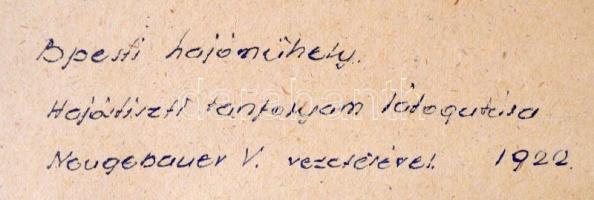 Bpesti hajóműhely.
Hajótiszti tanfolyam látogatása
Neugebauer V. vezetésével. 1922.